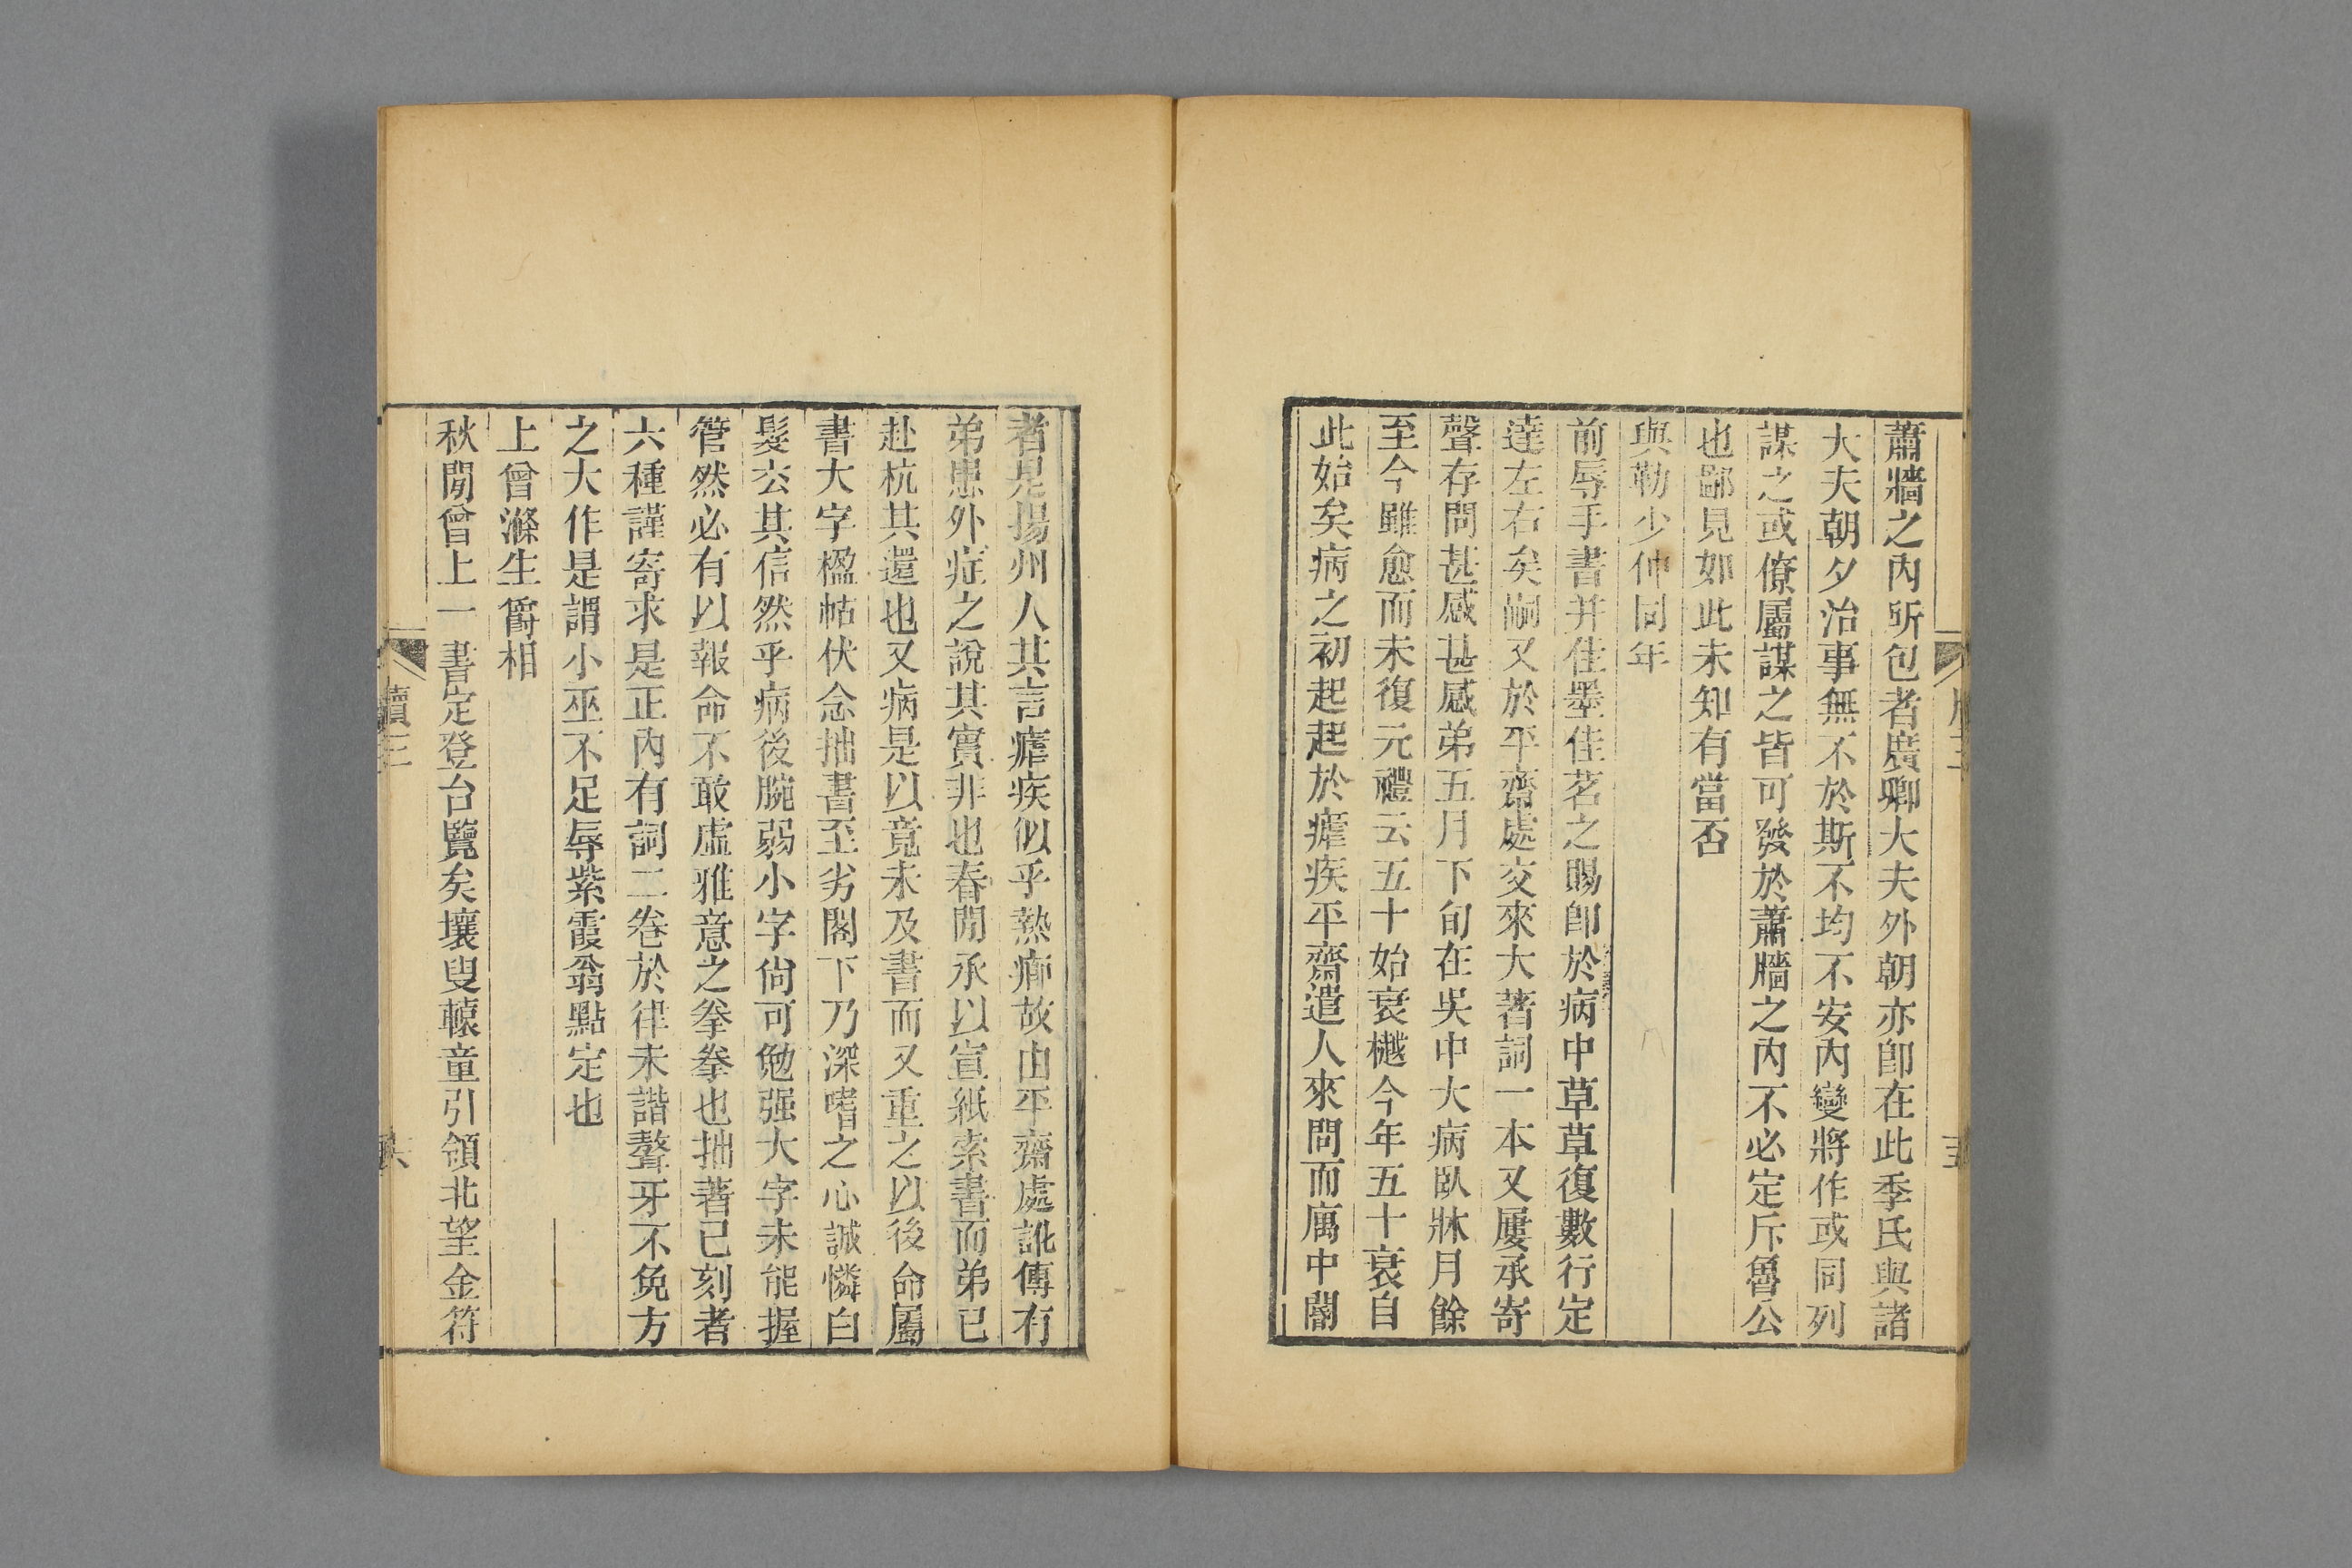 蕭牆之內所包者廣卿大夫外朝亦卽在此季氏與諸
大夫朝夕治事無不於斯不均不安內變將作或同列
謀之或僚屬謀之皆可發於蕭牆之內不必定斥魯公
也鄙見如此未知有當否
與勒少仲同年
前辱手書并佳墨佳茗之賜卽於病中草草復數行定
達左右矣嗣又於平齋處交來大著詞一本又屢承寄
聲存問甚感甚感弟五月下旬在吳中大病臥牀月餘
至今雖愈而未復元禮云五十始衰樾今年五十衰自
此始矣病之初起起於瘧疾平齋遣人來問而厲中閽
者是揚州人其言瘧疾似乎熱癤故由平齋處訛傳有
弟患外症之說其實非也春閒承以宣紙索書而弟已
赴杭其還也又病是以竟未及書而又重之以後命屬
書大字楹帖伏念拙書至劣閣下乃深嗜之心誠憐白
髮玄其信然乎病後腕弱小字尙可勉强大字未能握
管然必有以報命不敢虛雅意之拳拳也拙著已刻者
六種謹寄求是正內有詞二卷於律未諧聱牙不免方
之大作是謂小巫不足辱紫霞翁點定也
上曾滌生爵相
秋閒曾上一書定登台覽矣壤叟轅童引領北望金符
續三